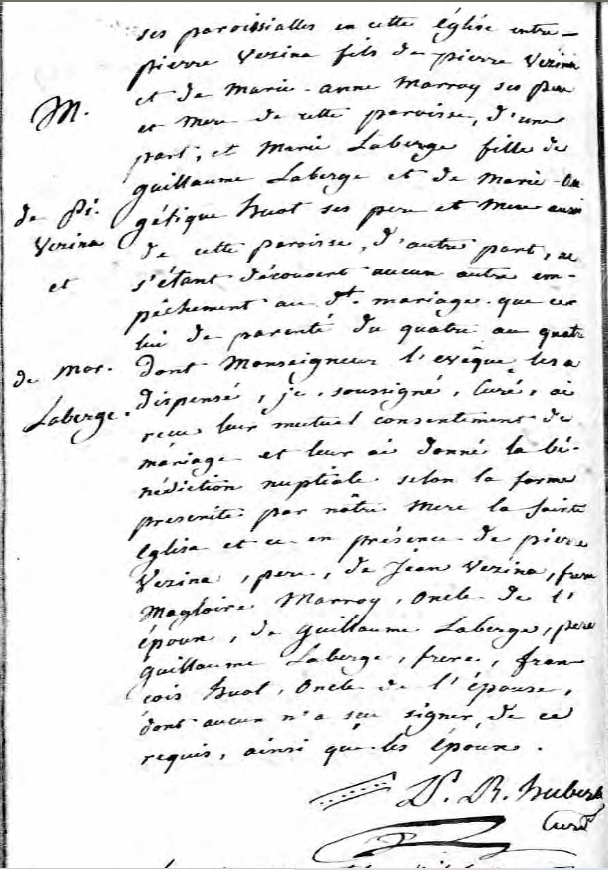 ses paroissialles en cette église entre
pierre Vezina fils de pierre Vezina
et de Marie-anne Marroy ses pere
M.
et Mere de cette paroisse, d'une
part, et Marie Laberge fille de
guillaume Laberge et de Marie-An
de Pi.
Vezina
et
gélique huot ses pere et Mere aussi
de cette paroisse, d'autre part, ne
s'étant découvert aucun autre em-
pêchement au dt. mariage que ce
lui de parenté du quatre au quatre
de Mar.
Laberge.
dont Monseigneur l'evêque les a
dispensé, je, soussigné, Curé, ai
recu leur mutuel consentement de
mariage et leur ai donné la bé-
nédiction nuptiale selon la forme
prescrite par nôtre Mere la sainte
église et ce en présence de pierre
Vezina, pere, de Jean Vezina, frere
Magloire Marroy, Oncle de l'
époux, de guillaume Laberge, pere
guillaume Laberge, frere, fran
cois huot, Oncle de l'épouse,
dont aucun n'a sçu signer, de ce
requis, ainsi que les époux.
D. R. hubert
Curé